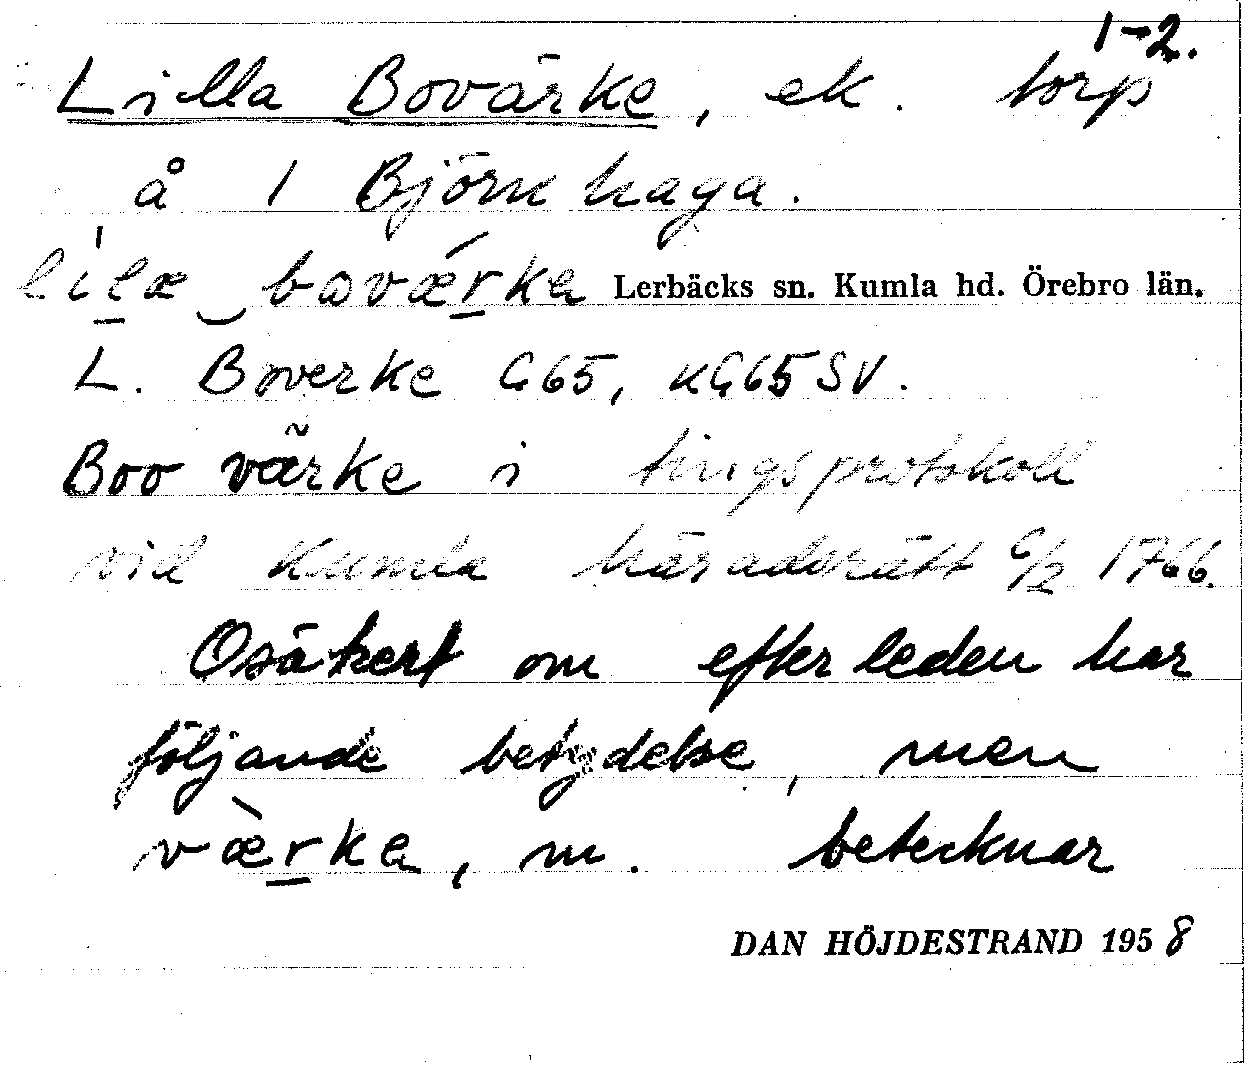 1-2.
Lilla Bovärke, ek. torp
å 1 Björnhaga.
Lerbäcks sn. Kumla hd. Örebro län.
L. Boverke G65, KG65SV.
Boo värke i tingsprotokoll
vid Kumla häradsrätt 1766.
Osäkert om efterleden har
följande betydelse, men
værka, m. betecknar
DAN HÖJDESTRAND 1958